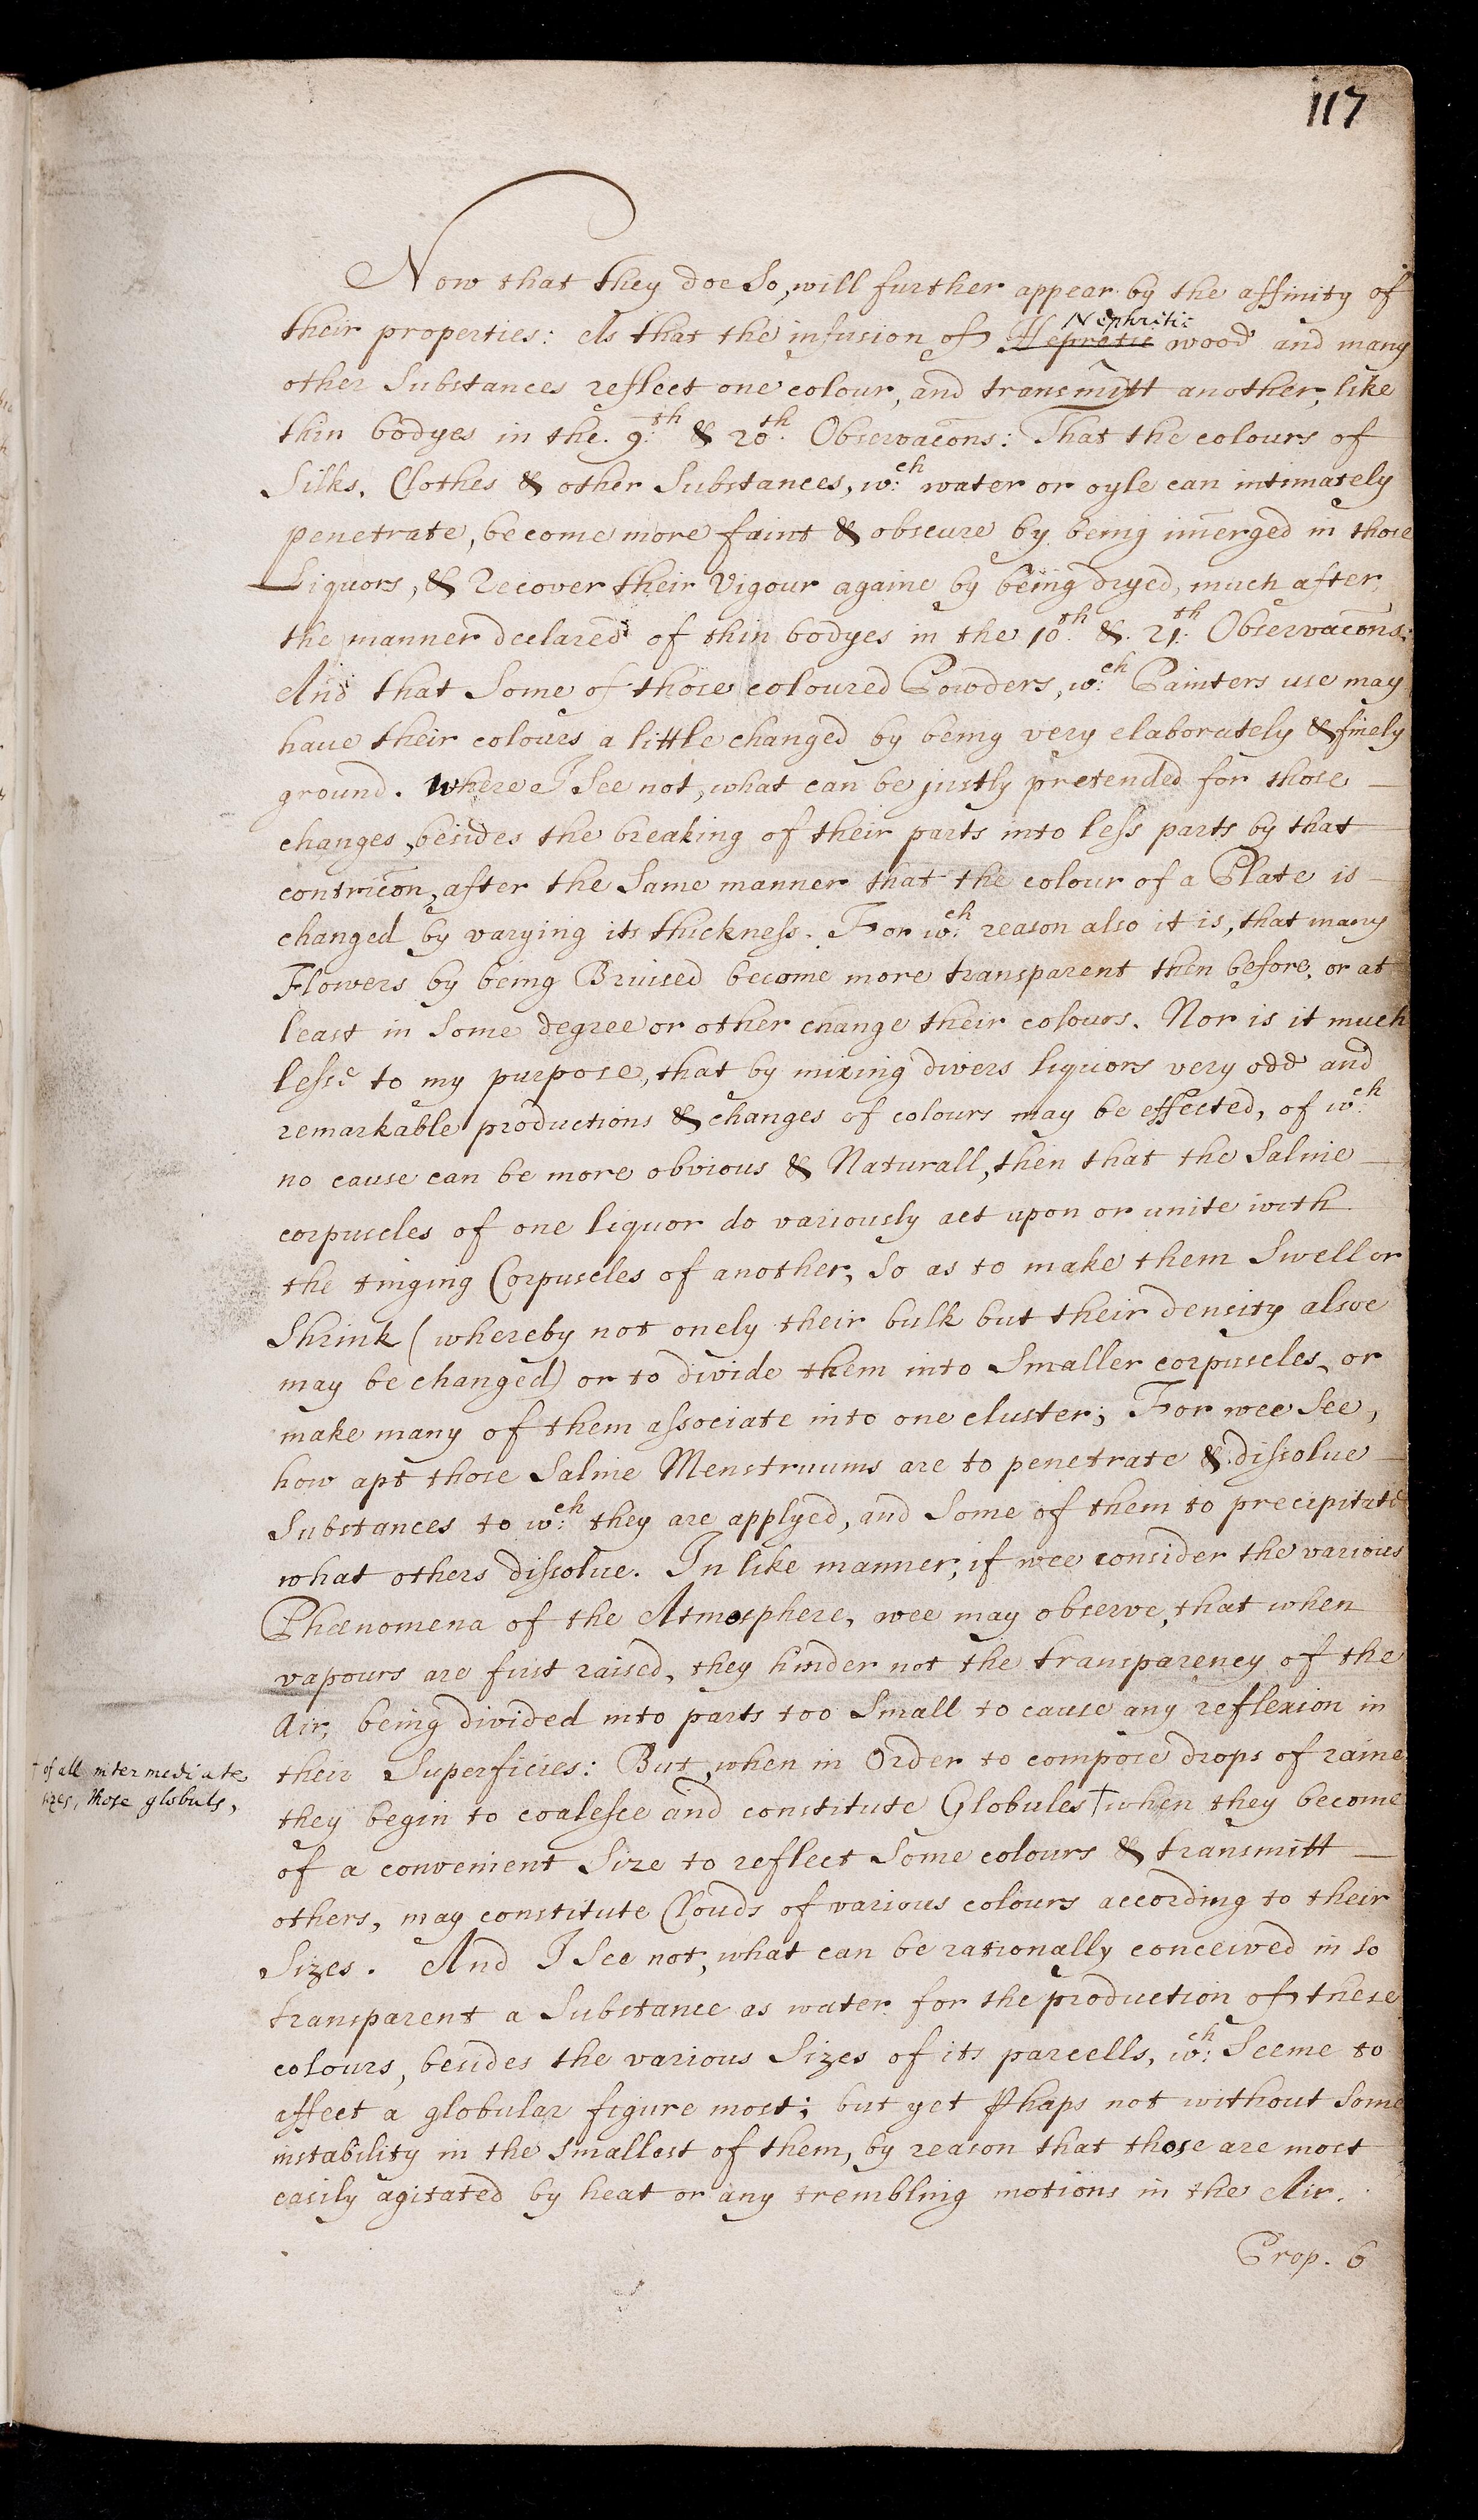 117
Now that they doe So, will further appear by the affinity of
their properties: As that the infusion of Hepretic Nephritic wood and many
other Substances reflect one colour, and transmitt another, like
thin bodyes in the. 9:th & 20th. Observac̄ons: That the colours of
Silks, Clothes & other Substances, w:ch water or oyle can intimately
penetrate, become more faint & obscure by being im̄erged in those
Liquors, & Recover their Vigour againe by being dryed, much after
the manner declared of thin bodyes in the 10th. & 21:th Observac̄ons:
And that Some of those coloured Powders, w:ch Painters use may
haue their colours a little changed by being very elaborately & finely
ground. Where I See not, what can be justly pretended for those
changes, besides the breaking of their parts into less parts by that
contric̄on, after the Same manner that the colour of a Plate is
changed by varying its thickness. For w:ch reason also it is, that many
Flowers by being Bruised become more transparent then before, or at
least in Some degree or other change their colours. Nor is it much
lesse to my purpose, that by mixing divers liquors very odd and
remarkable productions & changes of colours may be effected, of w:ch
no cause can be more obvious & Naturall, then that the Saline
corpuscles of one liquor do variously act upon or unite with
the tinging Corpuscles of another, So as to make them Swell or
Shrink (whereby not onely their bulk but their density alsoe
may be changed) or to divide them into Smaller corpuscles, or
make many of them associate into one cluster; For wee See,
how apt those Saline Menstruums are to penetrate & dissolue
Substances to w:ch they are applyed, and Some of them to precipitate
what others dissolue. In like manner, if wee consider the various
Phænomena of the Atmosphere, wee may observe, that when
vapours are first raised, they hinder not the transparency of the
Air, being divided into parts too Small to cause any reflexion in
their Superficies: But, when in Order to compose drops of raine
they begin to coalesce and constitute Globules † when they become
† of all intermediate
sizes, those globuls,
of a convenient Size to reflect Some colours & transmitt
others, may constitute Clouds of various colours according to their
Sizes. And I See not, what can be rationally conceived in so
transparent a Substance as water for the production of these
colours, besides the various Sizes of its parcells, w:ch Seeme to
affect a globular figure most; but yet ꝑhaps not without Some
instability in the Smallest of them, by reason that those are most
easily agitated by heat or any trembling motions in the Air.
Prop. 6